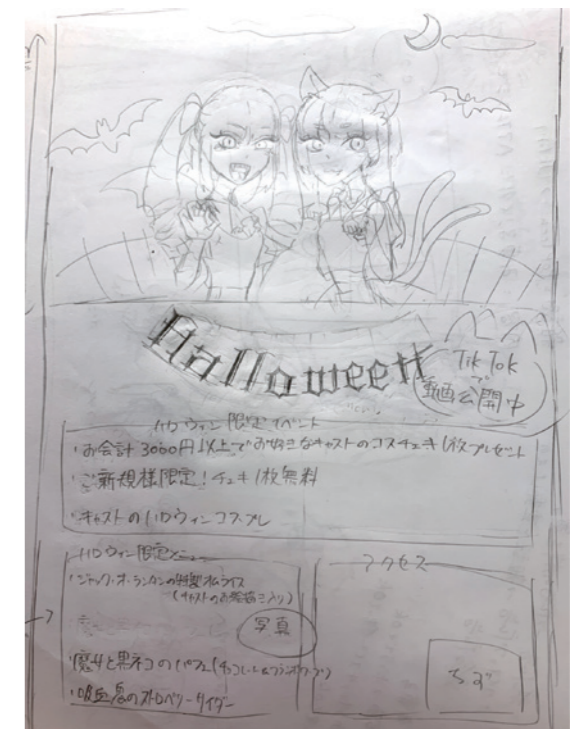 Halloween
TikTok
で
動画公開中
ハロウィン限定イベント
・お会計3000円以上でお好きなキャストのコスチェキ1枚プレゼント
・ご新規様限定!チェキ1枚無料
・キャストのハロウィンコスプレ
ハロウィン限定メニュー
・ジャック・オ・ランタンの特製オムライス
(キャストのお絵描き入り)
写真
・魔女と黒ネコのパフェ(チョコレート&
・吸血鬼のストロベリーサイダー
アクセス
ちず